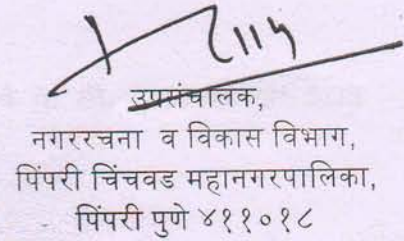 उपसंचालक,
नगररचना व विकास विभाग,
पिंपरी चिंचवड महानगरपालिका,
पिंपरी पुणे ४११०१८